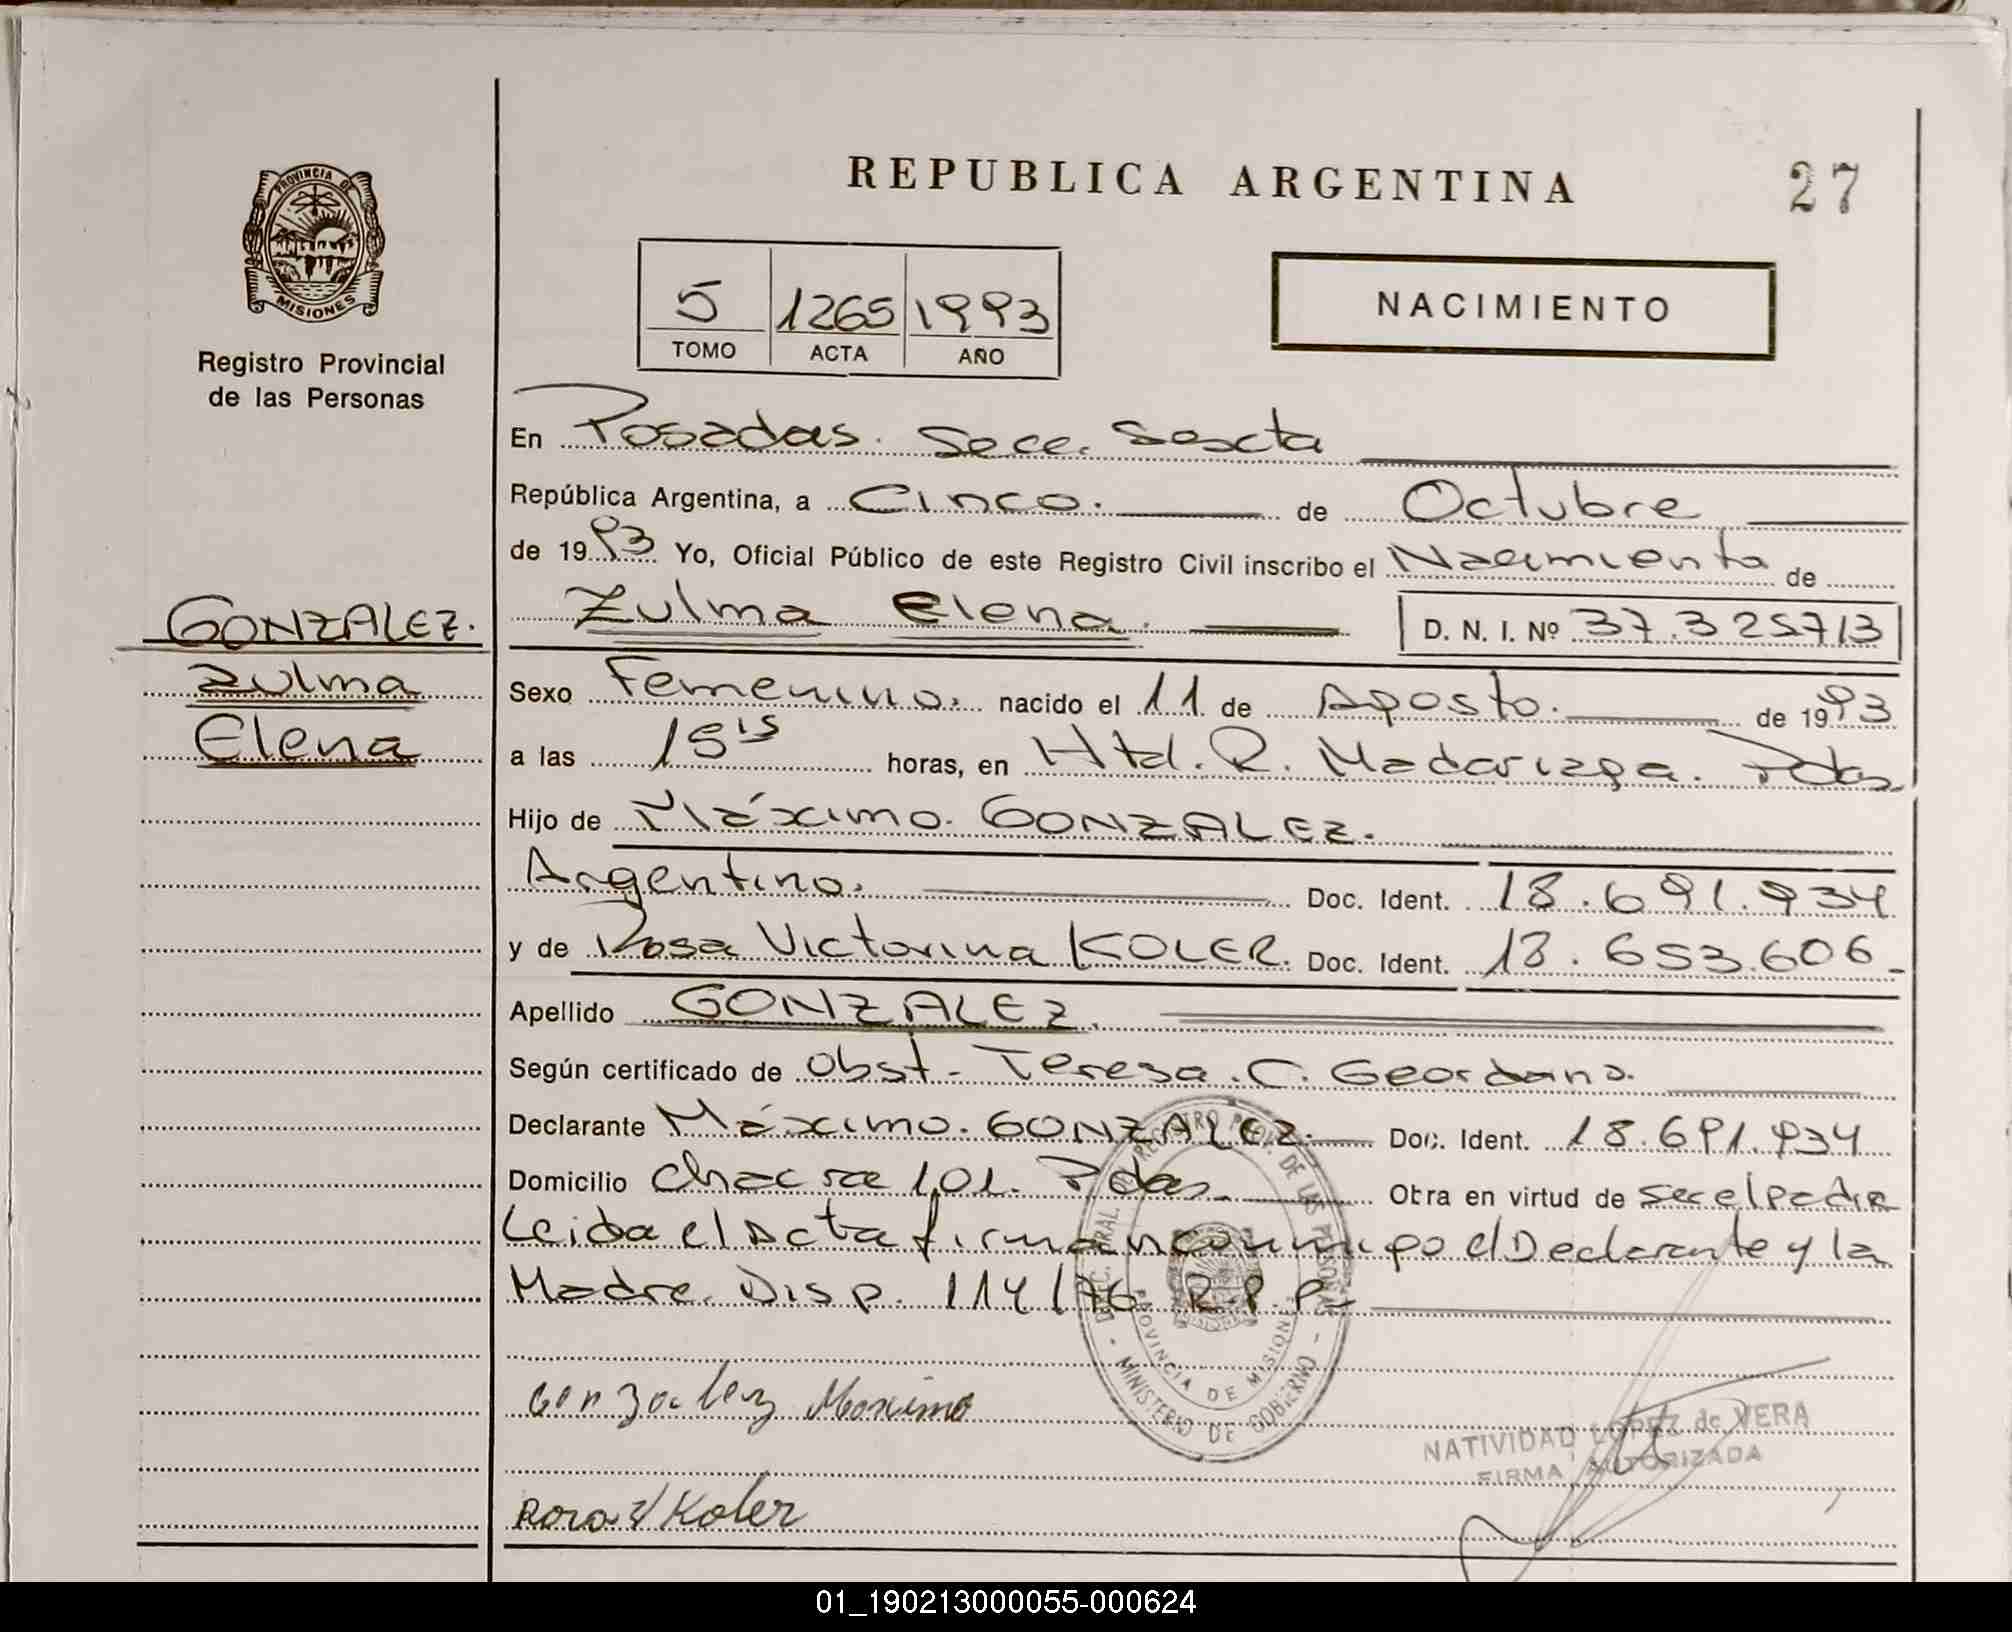 PROVINCIA DE
MISIONES
Registro Provincial
de las Personas
GONZALEZ.
Zulma
Elena
REPUBLICA ARGENTINA
27
5 1265 1993
TOMO ACTA AÑO
NACIMIENTO
En Posadas. Secc. Sexta
República Argentina, a Cinco. de Octubre
de 1993 Yo, Oficial Público de este Registro Civil inscribo el Nacimiento de
Zulma Elena. D. N. I. Nº 37.325713
Sexo Femenino. nacido el 11 de Agosto. de 1993
a las horas, en Htal. R. Madariaga. Pdas.
Hijo de Máximo. GONZALEZ.
Argentino. Doc. Ident. 18.691.934
y de Rosa Victorina KOLER. Doc. Ident. 18.653.606
Apellido GONZALEZ.
Según certificado de Obst. Teresa. C. Geordano.
Declarante Máximo. GONZALEZ. Doc. Ident. 18.691.934
Domicilio Chacra 101. Pdas. Obra en virtud de ser el padre
Leida el Acta firman conmigo el Declarante y la
Madre. Disp. 114/76 R.P.P.
DIREC. GRAL. DEL REGISTRO PROV. DE LAS PERSONAS
PROVINCIA DE MISIONES
- MINISTERIO DE GOBIERNO -
Gonzalez Maximo
NATIVIDAD LOPEZ de VERA
FIRMA AUTORIZADA
Rosa V Koler
01_190213000055-000624